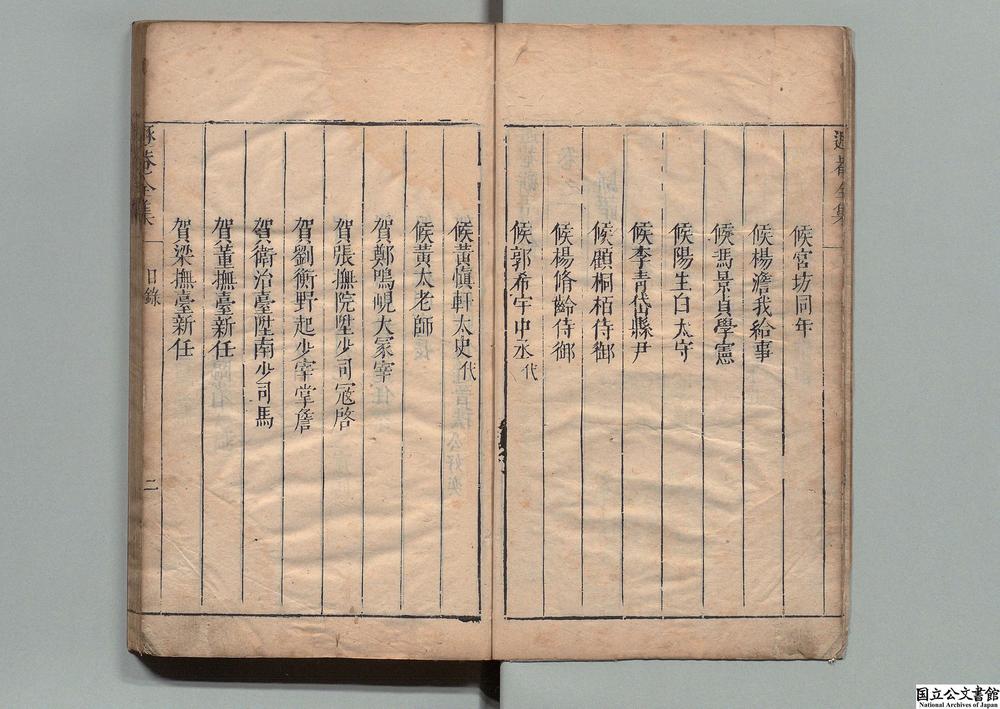 候宮坊同年
候楊澹我給事
候馮景貞學憲
候陽生白太守
候李青岱縣尹
候顧桐栢侍御
候楊脩齡侍御
候郭希宇中丞代
候黃慎軒太史代
候黃太老師
賀鄭鳴峴大冢宰
賀張撫院陞少司寇啓
賀劉衡野起少宰掌詹
賀衛治臺陞南少司馬
賀董撫臺新任
賀梁撫臺新任
全集 目錄 二
国立公文書館
National Archives of Japan